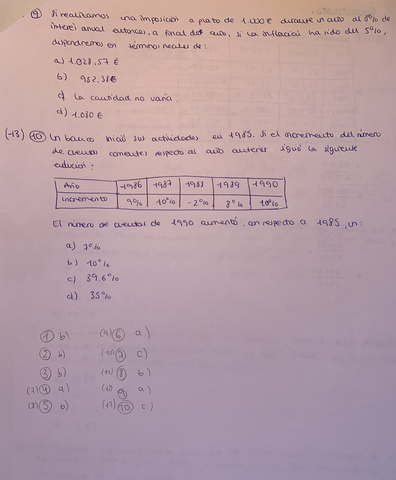 ⑨ Si realizamos una imposición a plazo de 1.000 € durante un año al 8% de
interés anual entonces, a final del año, si la inflación ha sido del 5%,
dispondremos en términos reales de:
a) 1.028,57 €
b) 952,38€
c) La cantidad no varía
d) 1.080 €
(-13) ⑩ Un banco inició sus actividades en 1985. Si el incremento del número
de cuentas corrientes respecto al año anterior siguió la siguiente
evolución:
Año 1986 1987 1988 1989 1990
Incremento 9% 10% -2% 8% 10%
El número de cuentas de 1990 aumentó, con respecto a 1985, un:
a) 7%
b) 10%
c) 39,6%
d) 35%
① b) (9) ⑥ a)
② b) (10) ⑦ c)
③ b) (11) ⑧ b)
(7) ④ a) (10 ⑨ a)
(8) ⑤ b) (11) ⑩ c)